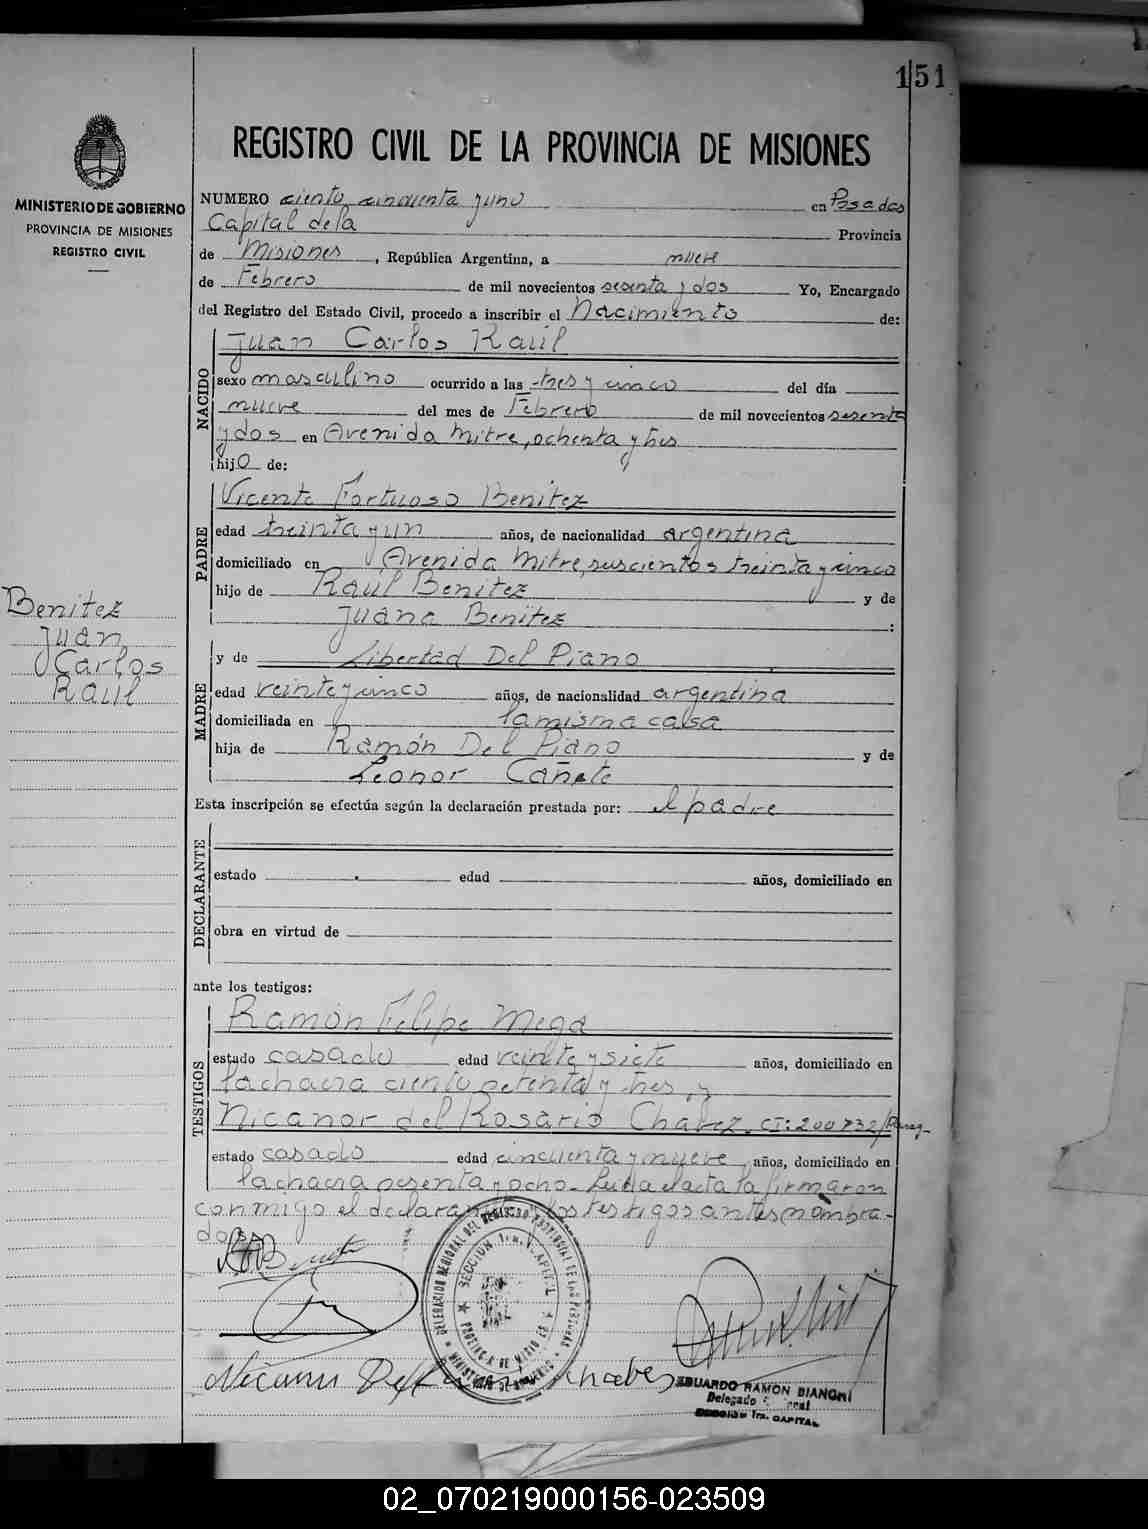 151
REGISTRO CIVIL DE LA PROVINCIA DE MISIONES
MINISTERIO DE GOBIERNO
PROVINCIA DE MISIONES
REGISTRO CIVIL
NUMERO ciento cincuenta y uno en Posadas
Capital de la Provincia
de Misiones, República Argentina, a nueve
de Febrero de mil novecientos sesenta y dos Yo, Encargado
del Registro del Estado Civil, procedo a inscribir el Nacimiento de:
NACIDO
Juan Carlos Raúl
sexo masculino ocurrido a las tres y cinco del día
nueve del mes de Febrero de mil novecientos sesenta
y dos en Avenida Mitre, ochenta y tres
hijo de:
PADRE
Vicente Fortuoso Benitez
edad treinta y un años, de nacionalidad argentina
domiciliado en Avenida Mitre, treinta y cinco
hijo de Raúl Benitez y de
Juana Benitez :
Benitez
Juan
Carlos
Raúl
y de Libertad Del Piano
MADRE
edad veinte y cinco años, de nacionalidad argentina
domiciliada en la misma casa
hija de Ramón Del Piano y de
Leonor Cañete
Esta inscripción se efectúa según la declaración prestada por: el padre
DECLARANTE
estado edad años, domiciliado en
obra en virtud de
ante los testigos:
TESTIGOS
Ramón Felipe Meza
estado casado edad veinte y siete años, domiciliado en
la chacra ciento setenta y tres, y
Nicanor del Rosario Chavez CI: 200732/Parag.
estado casado edad cincuenta y nueve, años, domiciliado en
la chacra sesenta y ocho. Leída el acta la firmaron
conmigo el declarante los testigos antes nombra-
dos.
SECCION 1ra. CAPITAL
EDUARDO RAMON BIANCHI
Delegado
SECCION 1ra. CAPITAL
02_070219000156-023509